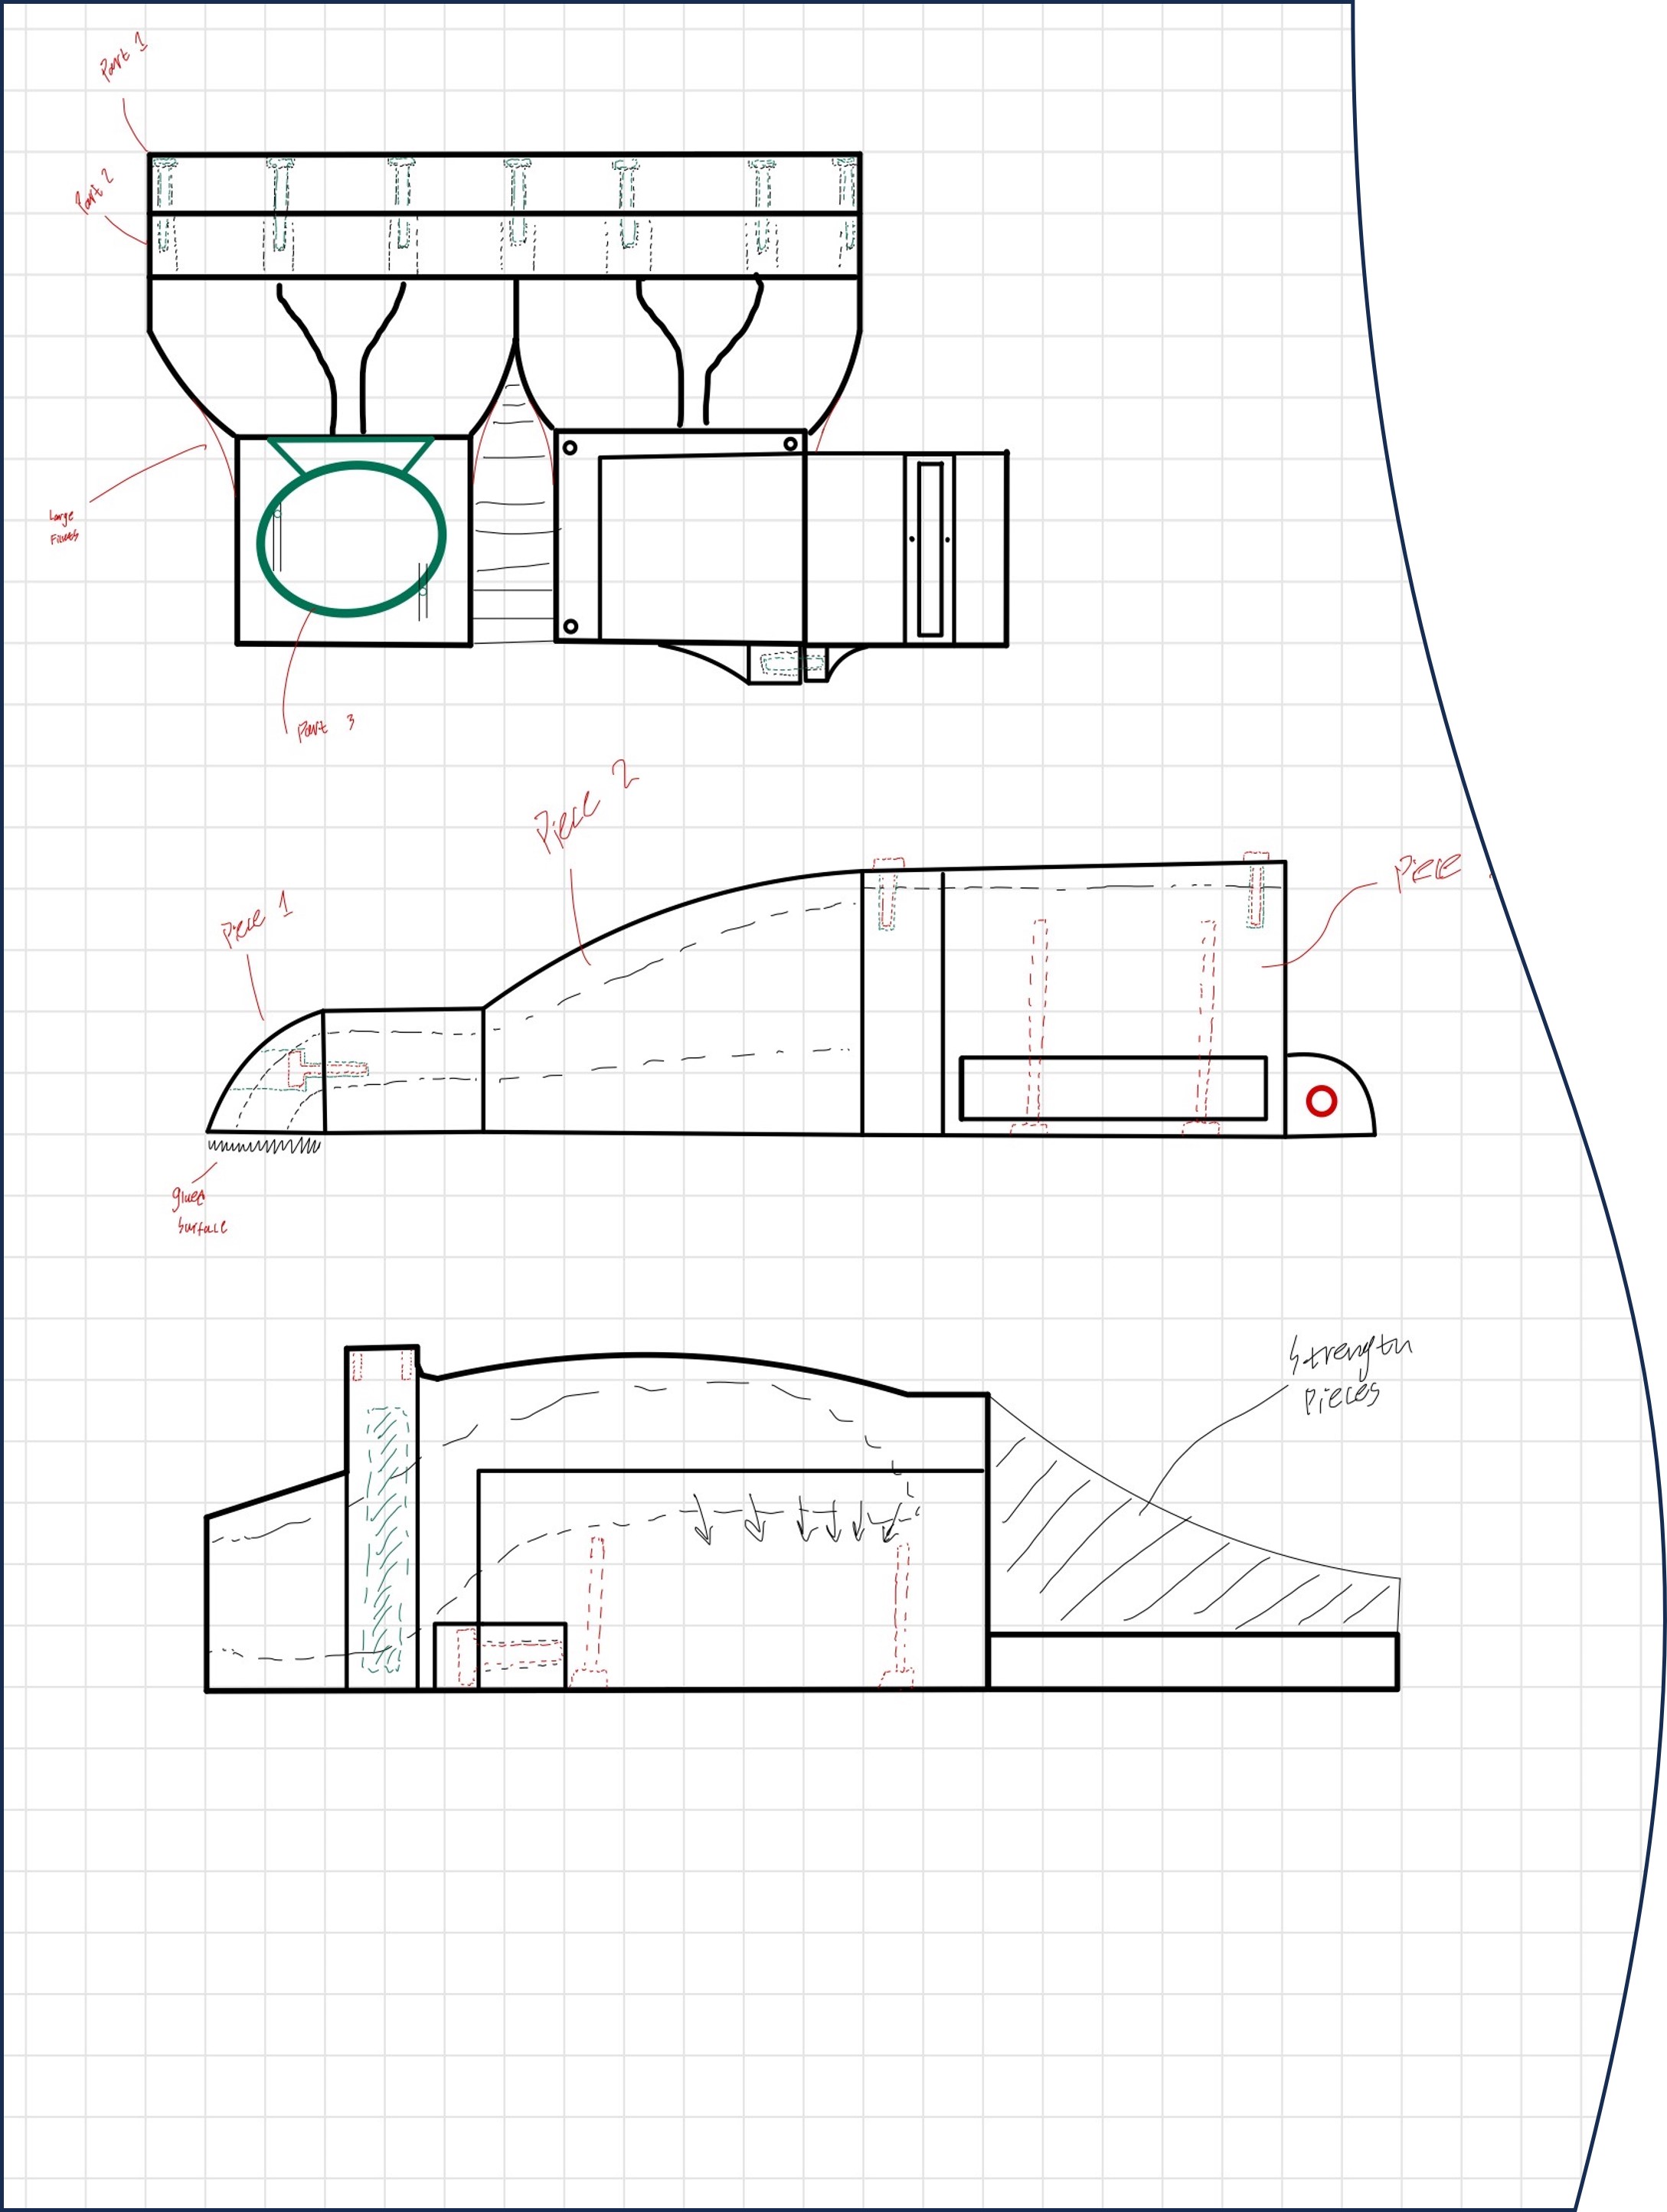 Part 1
Part 2
Large
Fillets
Part 3
Piece 2
Piece 1
Piece
glued
surface
Strength
pieces